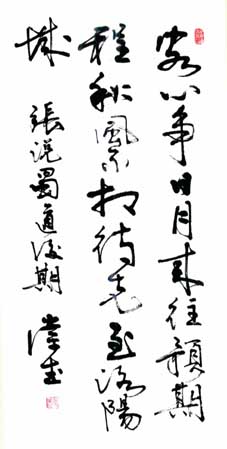 客心爭日月來往預期
程秋風不相待先至洛陽
城
張說蜀道後期